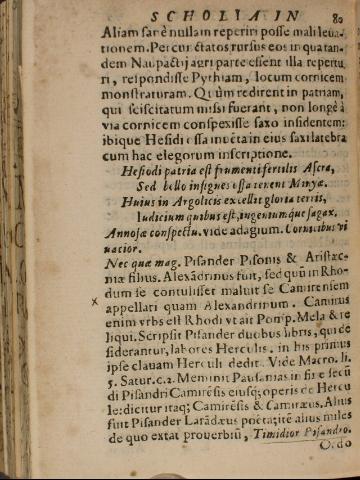 SCHOLIA IN 80
Aliam sanè nulla in re periri posse mali leua-
tionem. Percunctatos rursus eos in quatan-
dem Naupactij agri parte essent illa repertu
ri, respondisse Pythiam, locum cornicem
monstraturam. Quùm redirent in patriam,
qui sciscitatum missi fuerant, non longè à
via cornicem conspexisse saxo insidentem:
ibique Hesiodi ossa inuēta in eius saxi latebra
cum hac elegorum inscriptione.
Hesiodi patria est frumenti fertilis Ascra,
Sed bello insignes ossa tenent Minyæ.
Huius in Argolicis excellit gloria terris,
Iudicium quibus est, ingeniumque sagax.
Annosæ conspectu. vide adagium. Cornicibus vi
uacior.
Nec quæ mag. Pisander Pisonis & Aristæc-
niæ filius. Alexādrinus fuit, sed quū in Rho-
dum se contulisset maluit se Camirensem
appellari quam Alexandrinum. Camirus
enim vrbs est Rhodi vt ait Pomp. Mela & re
liqui. Scripsit Pisander duobus libris, qui de
siderantur, labores Herculis. in his primus
ipse clauam Herculi dedit. Vide Macro. li.
5. Satur. c.2. Meminit Pausanias in fine secū
di Pisandri Camirēsis eiusq; operis de Hercu
le: dicitur itaq; Camirēsis & Camiræus. Alius
fuit Pisander Larādæus poēta; itē alius miles
de quo extat prouerbiū, Timidior Pisandro.